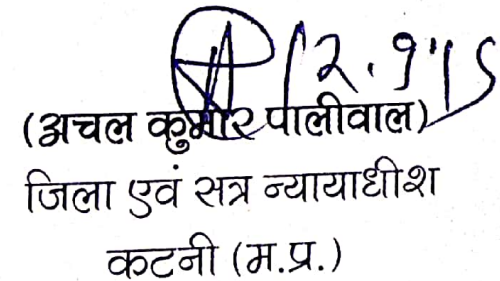 12.9.15
(अचल कुमार पालीवाल)
जिला एवं सत्र न्यायाधीश
कटनी (म.प्र.)